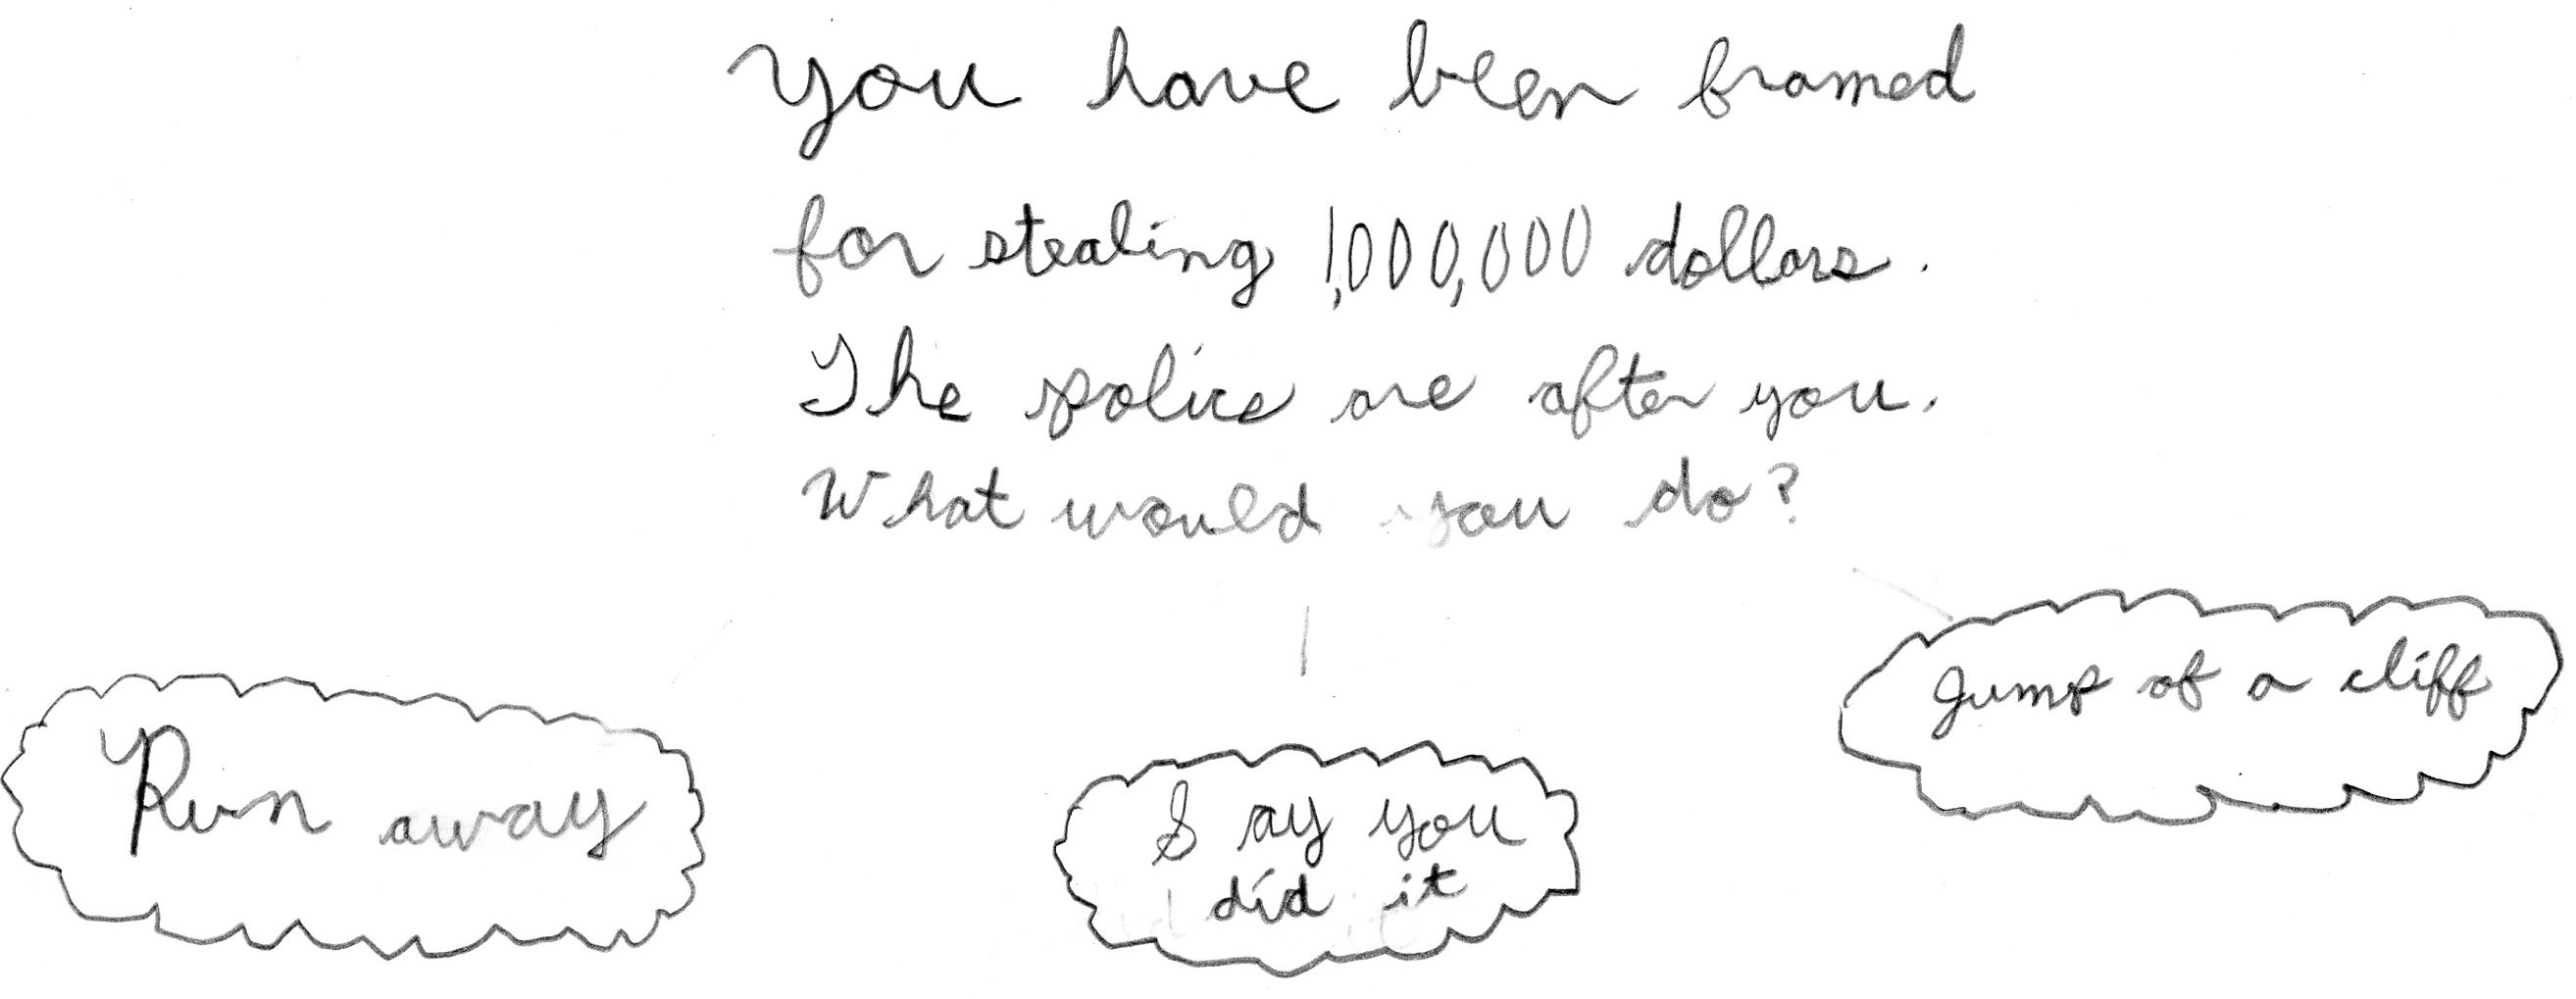 You have been framed
for stealing 1,000,000 dollars.
The police are after you.
What would you do?
Run away
Say you
did it
Jump of a cliff